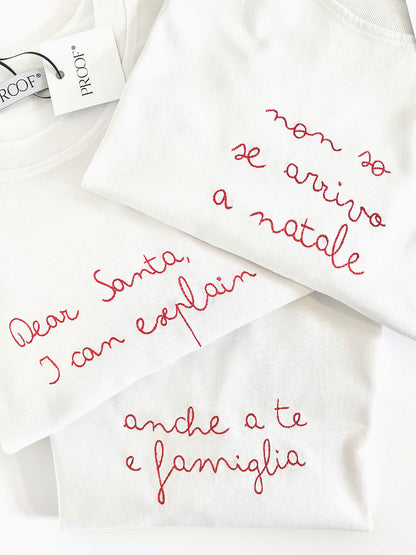 PROOF®
PROOF®
non so
se arrivo
a natale
Dear Santa,
I can explain
anche a te
e famiglia